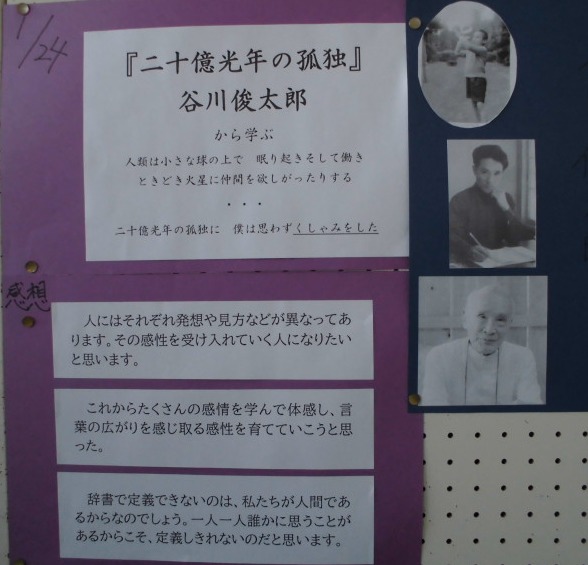 1/24
『二十億光年の孤独』
谷川俊太郎
から学ぶ
人類は小さな球の上で　眠り起きそして働き
ときどき火星に仲間を欲しがったりする
・・・
二十億光年の孤独に　僕は思わずくしゃみをした
感想
人にはそれぞれ発想や見方などが異なってあ
ります。その感性を受け入れていく人になりたい
と思います。
これからたくさんの感情を学んで体感し、言
葉の広がりを感じ取る感性を育てていこうと思
った。
辞書で定義できないのは、私たちが人間であ
るからなのでしょう。一人一人誰かに思うことが
あるからこそ、定義しきれないのだと思います。